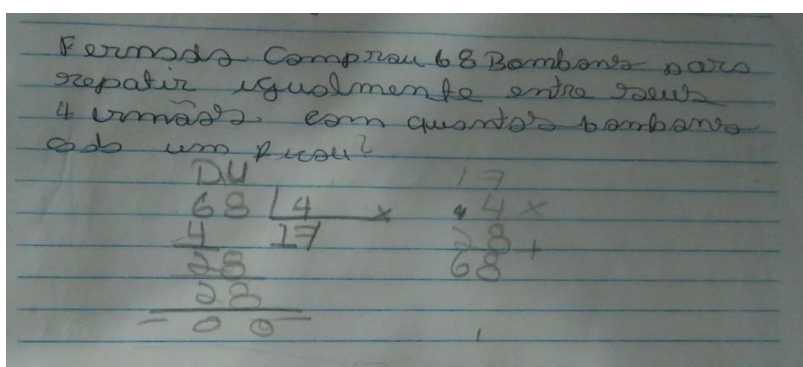 Fernada Comprou 68 Bombons para
repatir igualmente entre seus
4 irmãos. com quantos bombons
cada um ficou?
DU 17
68 4 x 4 x
4 17 28 +
28 68
28
- 0 0